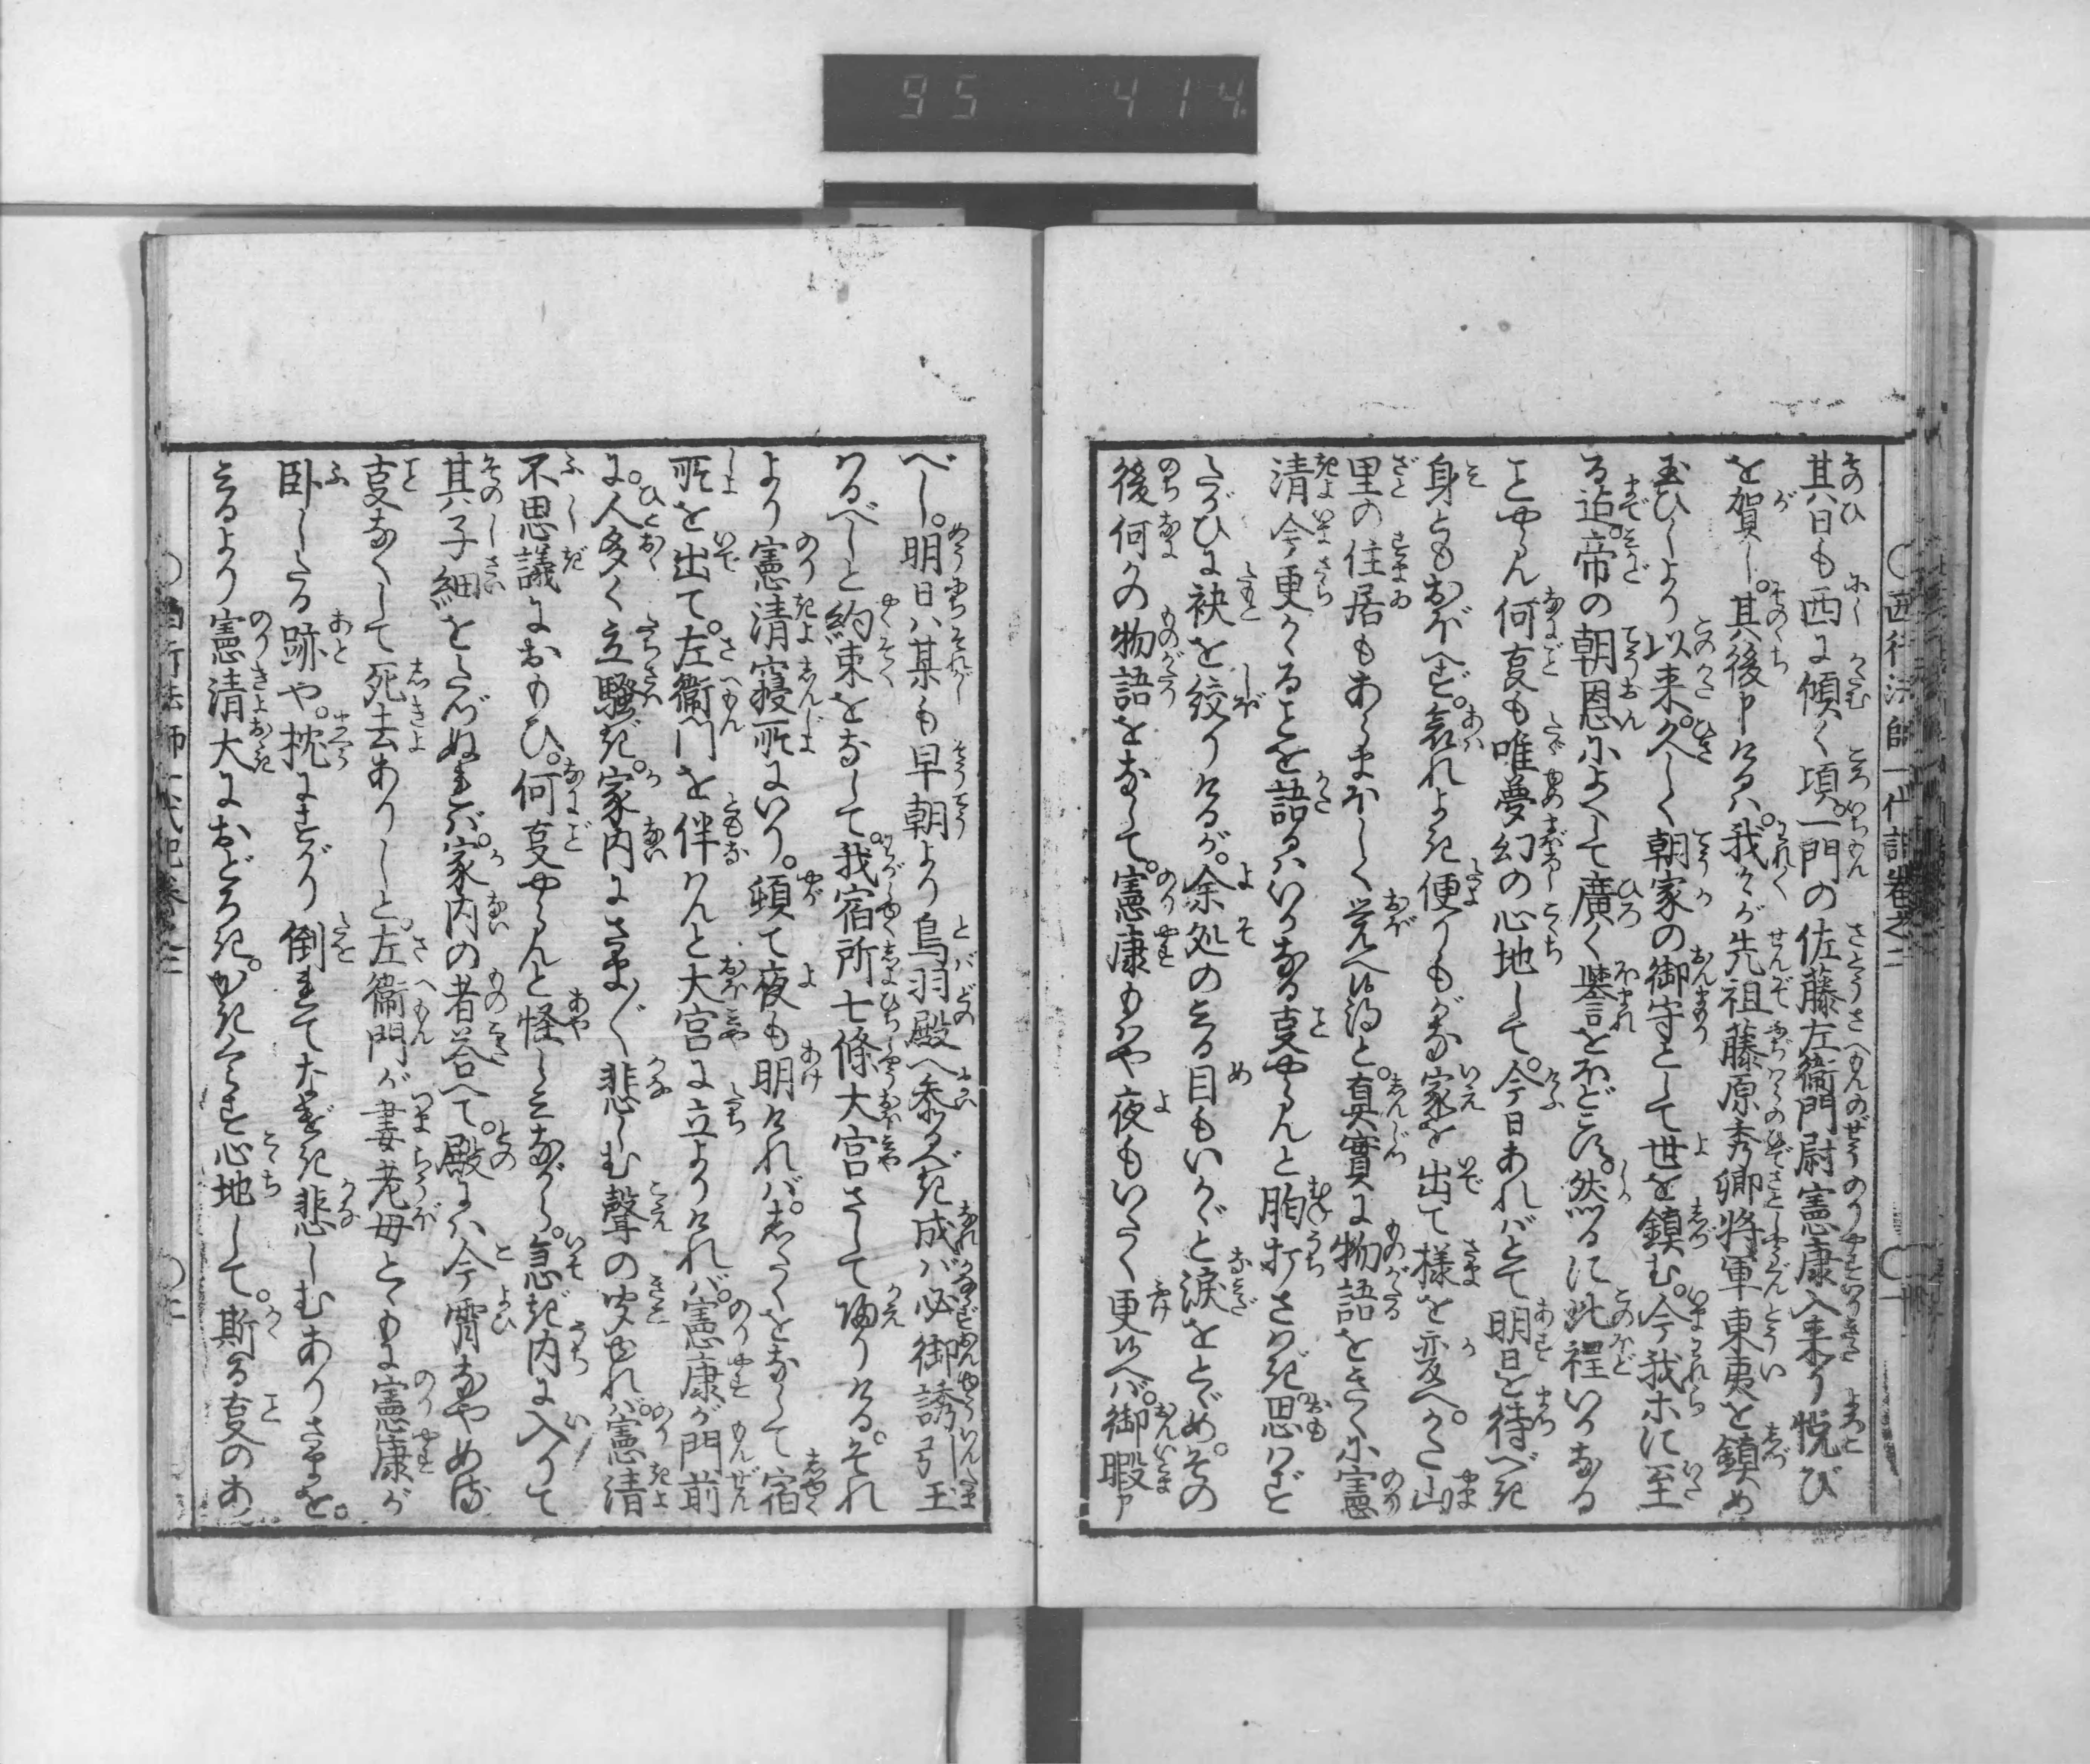 95 414
西行法師一代記巻之二
其日も西に傾く頃。一門の佐藤左衛門尉憲康入来り悦び
を賀し。其後申けるハ。我々が先祖藤原秀卿将軍東夷を鎮め
玉ひしより以来。久しく朝家の御守として世を鎮む。今我ホに至
る迠。帝の朝恩によつて廣く誉をほどこす。然るに此程いかなる
ことやらん何叓も唯夢幻の心地して。今日あれバとて明日を待べき
身ともおぼへず。哀れよき便りもがな家を出て様を変へ。かた山
里の住居もあらまほしく覚へ候と。真實に物語をきくに憲
清今更かゝることを語るハいかなる叓やらんと胸打さわぎ思わず
たがひに袂を絞りけるが。余処の見る目もいかゞと涙をとゞめ。その
後何かの物語をなして。憲康もはや夜もいたく更候へバ。御暇申
べし。明日ハ某も早朝より鳥羽殿へ参るべき成バ必御誘引玉
わるべしと約束をなして。我宿所七條大宮さして帰りける。それ
より憲清寝所にいり。頓て夜も明けれバ。したくをなして宿
所を出て。左衛門を伴わんと大宮に立よりけれバ。憲康が門前
に。人多く立騒ぎ。家内にさま〴〵悲しむ聲の聞ゆれバ。憲清
不思議におもひ。何叓やらんと怪しみながら。急ぎ内に入りて
其子細をたづぬれバ。家内の者答へて。殿にハ今宵なやめる
叓なくして死去ありしと。左衛門が妻老母ともに憲康が
臥したる跡や。枕にすがり倒れてなげき悲しむありさまを。
見るより憲清大におどろき。かきくらす心地して。斯る叓のあ
西行法師一代記巻之二